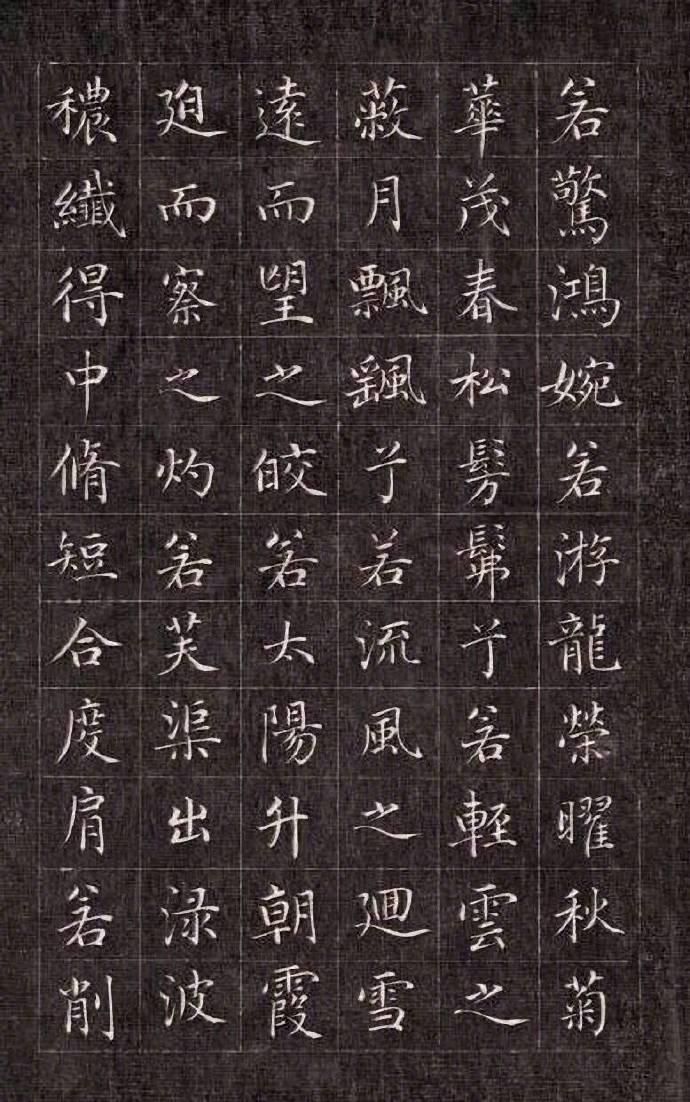 若驚鴻婉若游龍榮曜秋菊
華茂春松髣髴兮若輕雲之
蔽月飄颻兮若流風之迴雪
遠而望之皎若太陽升朝霞
迫而察之灼若芙渠出淥波
穠纖得中脩短合度肩若削